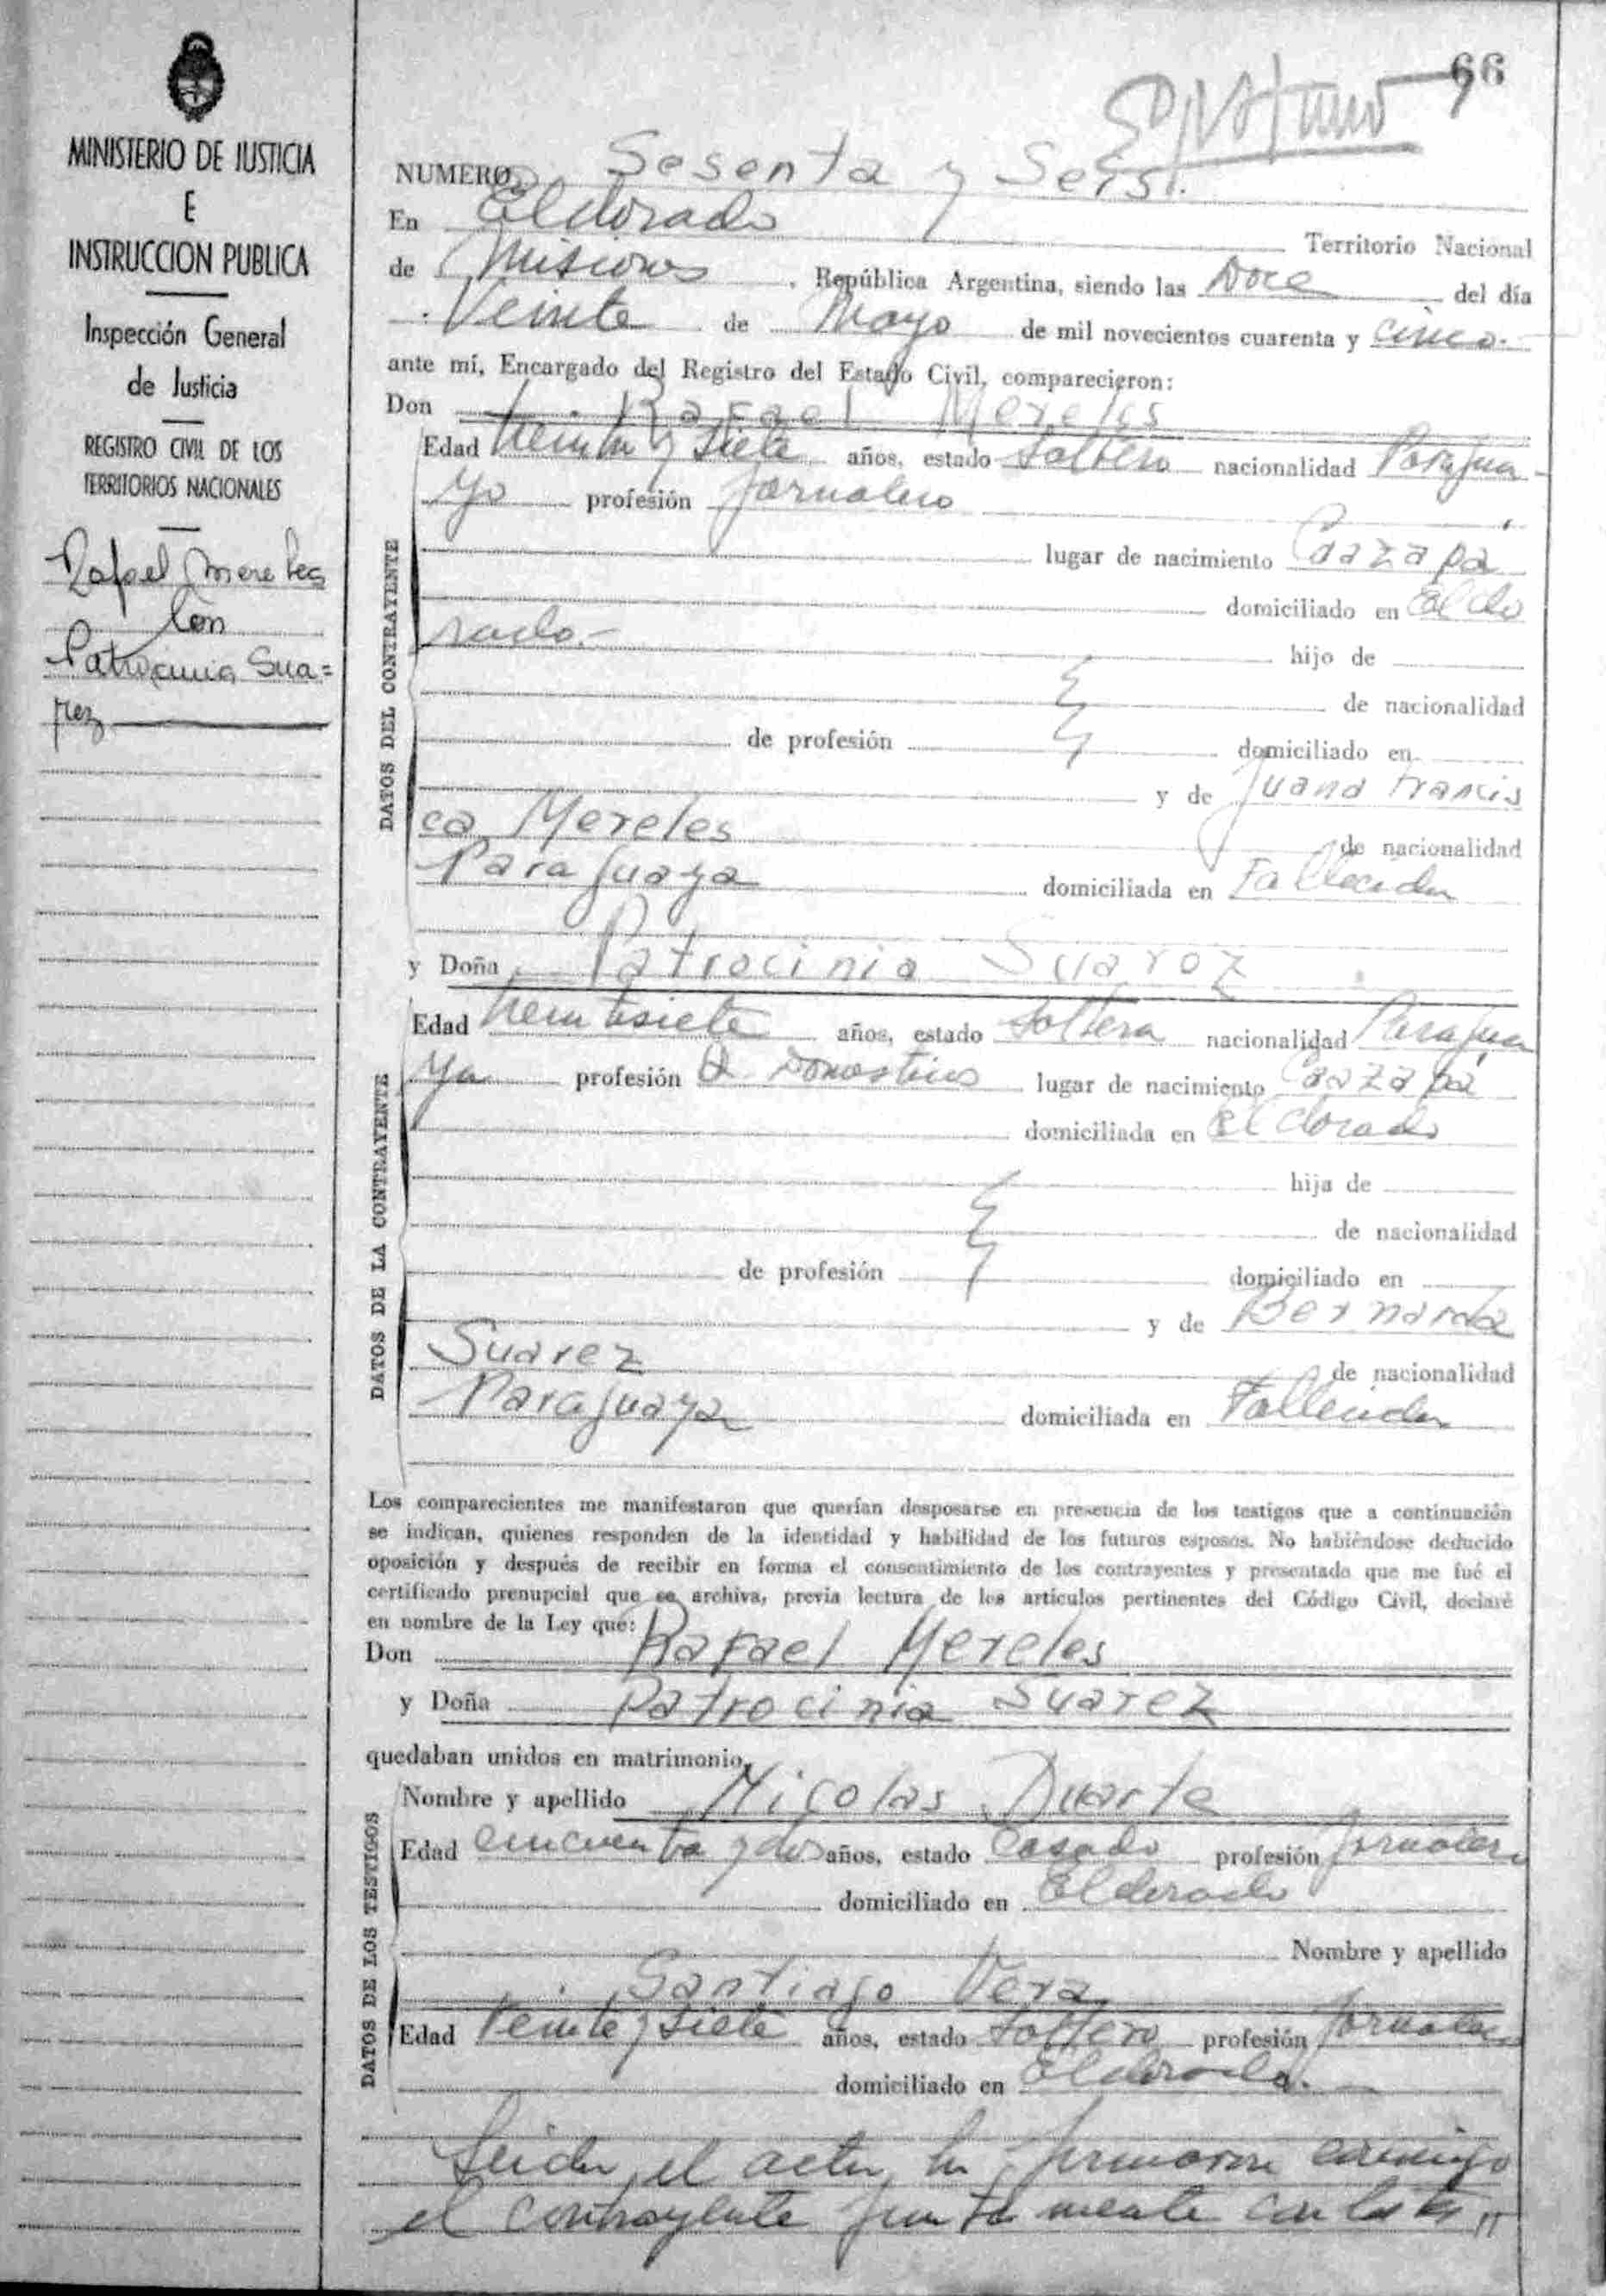 66
MINISTERIO DE JUSTICIA
E
INSTRUCCION PUBLICA
Inspección General
de Justicia
REGISTRO CIVIL DE LOS
TERRITORIOS NACIONALES
Rafael Mereles
Con
Patrocinia Sua=
rez
NUMERO Sesenta y Seis.
En Eldorado Territorio Nacional
de Misiones, República Argentina, siendo las Doce del día
Veinte de Mayo de mil novecientos cuarenta y cinco.
ante mí, Encargado del Registro del Estado Civil, comparecieron:
Don Rafael Mereles
DATOS DEL CONTRAYENTE
Edad Veinte y siete años, estado Soltero nacionalidad Paragua-
yo profesión Jornalero
lugar de nacimiento Caazapá
domiciliado en Eldo
rado.- hijo de
de nacionalidad
de profesión domiciliado en
y de Juana Francis
ca Mereles de nacionalidad
Paraguaya domiciliada en Fallecida
y Doña Patrocinia Suarez
DATOS DE LA CONTRAYENTE
Edad Veintisiete años, estado Soltera nacionalidad Paragua
ya profesión Q. Domesticos lugar de nacimiento Caazapá
domiciliada en Eldorado
hija de
de nacionalidad
de profesión domiciliado en
y de Bernarda
Suarez de nacionalidad
Paraguaya domiciliada en Fallecida
Los comparecientes me manifestaron que querían desposarse en presencia de los testigos que a continuación
se indican, quienes responden de la identidad y habilidad de los futuros esposos. No habiéndose deducido
oposición y después de recibir en forma el consentimiento de los contrayentes y presentado que me fué el
certificado prenupcial que se archiva, previa lectura de los artículos pertinentes del Código Civil, declaré
en nombre de la Ley que:
Don Rafael Mereles
y Doña Patrocinia Suarez
quedaban unidos en matrimonio.
DATOS DE LOS TESTIGOS
Nombre y apellido Nicolas Duarte
Edad cincuenta y dos años, estado Casado profesión Jornalero
domiciliado en Eldorado
Nombre y apellido
Santiago Vera
Edad Veinte y siete años, estado Soltero profesión Jornalero
domiciliado en Eldorado.
Leida el acta, la firmaron conmigo
el contrayente juntamente con los tes